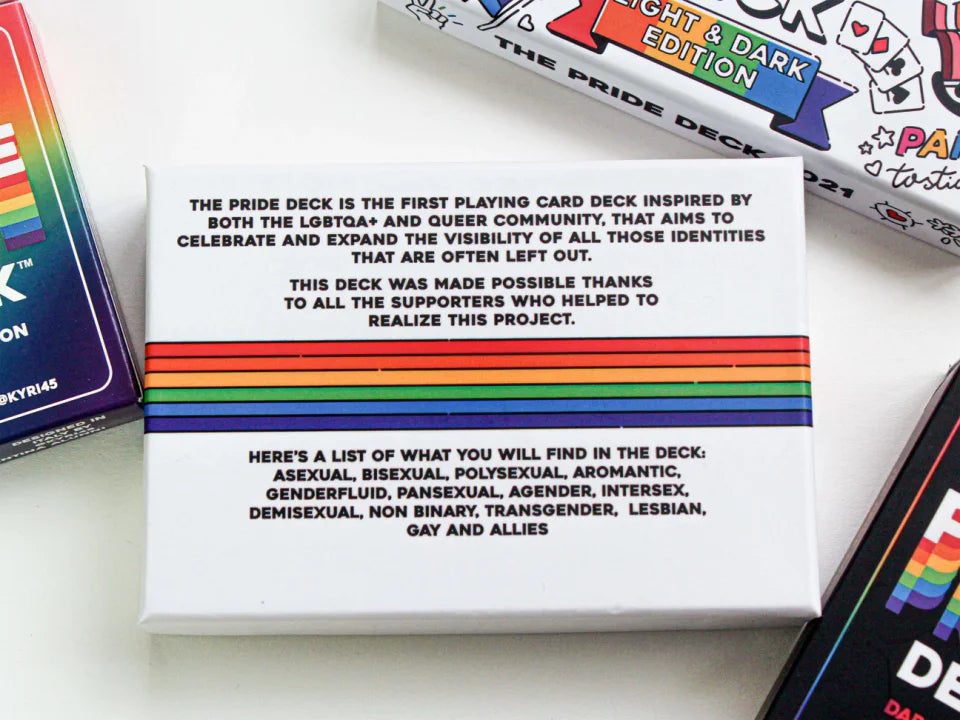 LIGHT & DARK
EDITION
THE PRIDE DECK 2021
TM
ON
@KYRI45
DESIGNED IN
ITALY BY
THE PRIDE DECK IS THE FIRST PLAYING CARD DECK INSPIRED BY
BOTH THE LGBTQA+ AND QUEER COMMUNITY, THAT AIMS TO
CELEBRATE AND EXPAND THE VISIBILITY OF ALL THOSE IDENTITIES
THAT ARE OFTEN LEFT OUT.
THIS DECK WAS MADE POSSIBLE THANKS
TO ALL THE SUPPORTERS WHO HELPED TO
REALIZE THIS PROJECT.
HERE'S A LIST OF WHAT YOU WILL FIND IN THE DECK:
ASEXUAL, BISEXUAL, POLYSEXUAL, AROMANTIC,
GENDERFLUID, PANSEXUAL, AGENDER, INTERSEX,
DEMISEXUAL, NON BINARY, TRANSGENDER,  LESBIAN,
GAY AND ALLIES